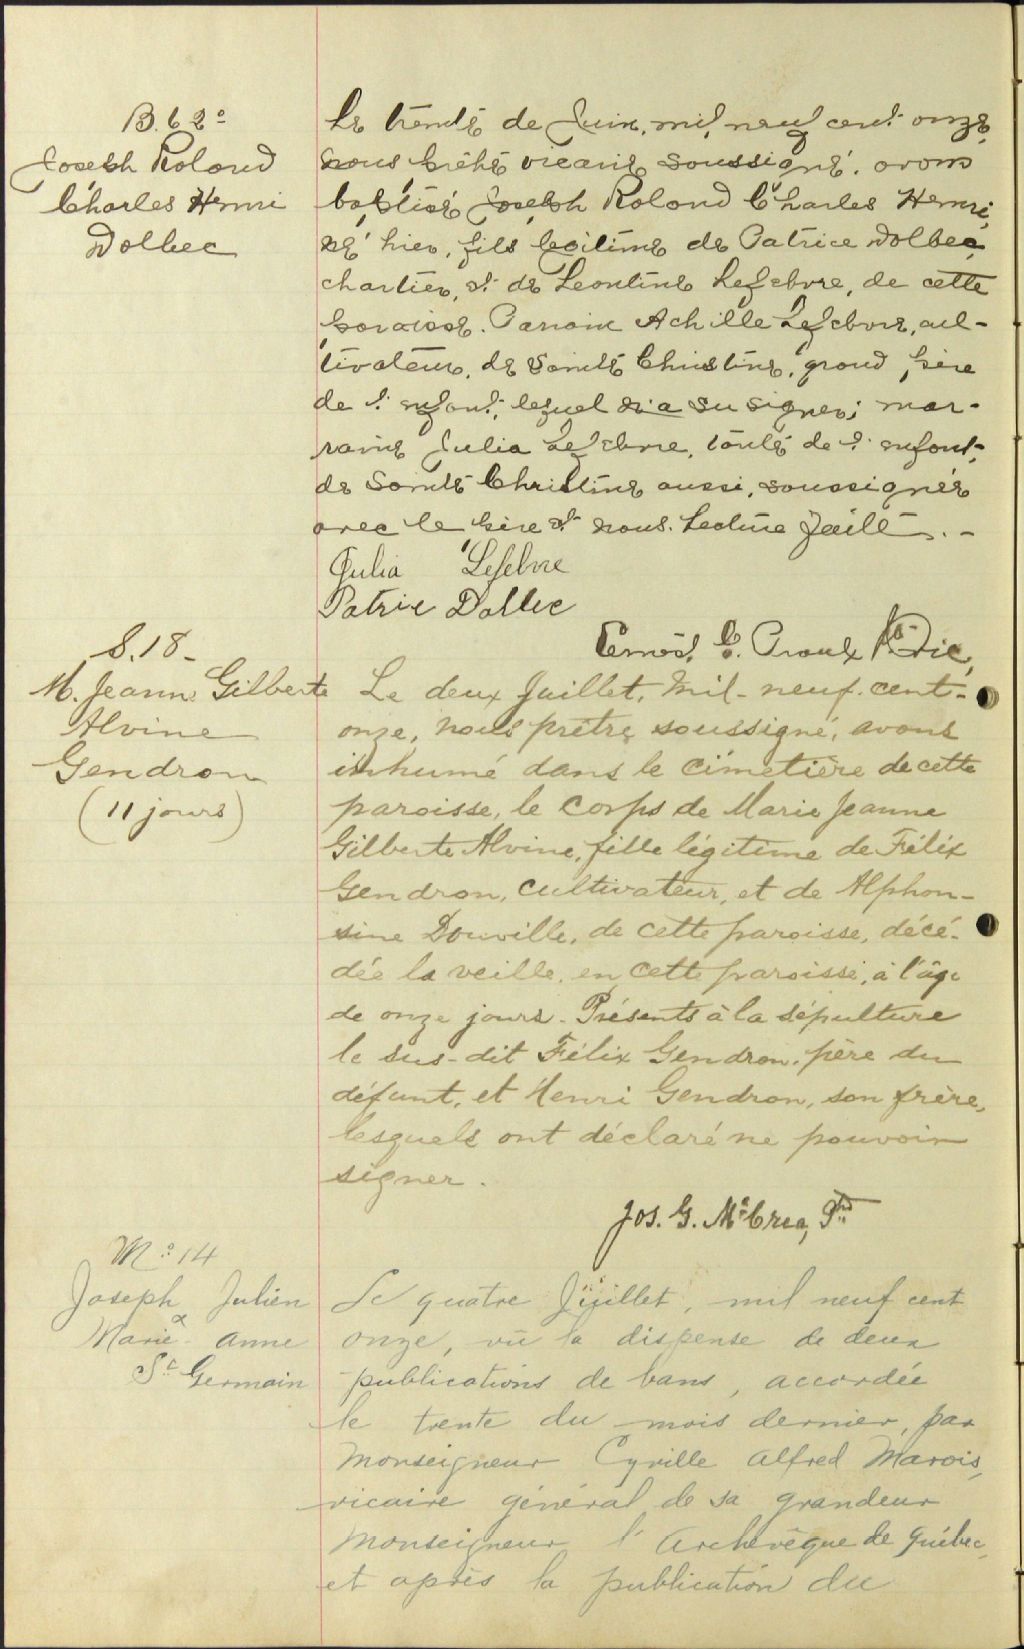 B. 62º
Joseph Roland
Charles Henri
Dolbec
Le trente de Juin, mil neuf cent onze,
nous prêtre vicaire soussigné, avons
baptisé Joseph Roland Charles Henri,
né hier, fils légitime de Patrice Dolbec,
chartier, et de Leontine Lefebvre, de cette
paroisse. Parrain Achille Lefebvre, cul-
tivateur, de Sainte Christine, grand père
de l'enfant, lequel n'a su signer; mar-
raine Julia Lefebvre, tante de l'enfant,
de Sainte Christine aussi, soussignée
avec le père et nous. Lecture faite. -
Julia Lefebvre
Patrice Dolbec
Ernest C. Proulx Ptre Vic,
S. 18 -
M. Jeanne Gilberte
Alvine
Gendron
(11 jours)
Le deux Juillet, mil-neuf-cent-
onze, nous prêtre soussigné, avons
inhumé dans le cimetière de cette
paroisse, le corps de Marie Jeanne
Gilberte Alvine, fille légitime de Félix
Gendron, cultivateur, et de Alphon-
sine Douville, de cette paroisse, décé-
dée la veille, en cette paroisse, à l'âge
de onze jours. Présents à la sépulture
le sus-dit Félix Gendron, père du
défunt, et Henri Gendron, son frère,
lesquels ont déclaré ne pouvoir
signer.
Jos. G. McCrea, Ptre
M º 14
Joseph Julien
&
Marie-Anne
St Germain
Le quatre Juillet, mil neuf cent
onze, vu la dispense de deux
publications de bans, accordée
le trente du mois dernier, par
Monseigneur Cyrille Alfred Marois,
vicaire général de sa grandeur
Monseigneur l'Archevêque de Québec,
et après la publication du